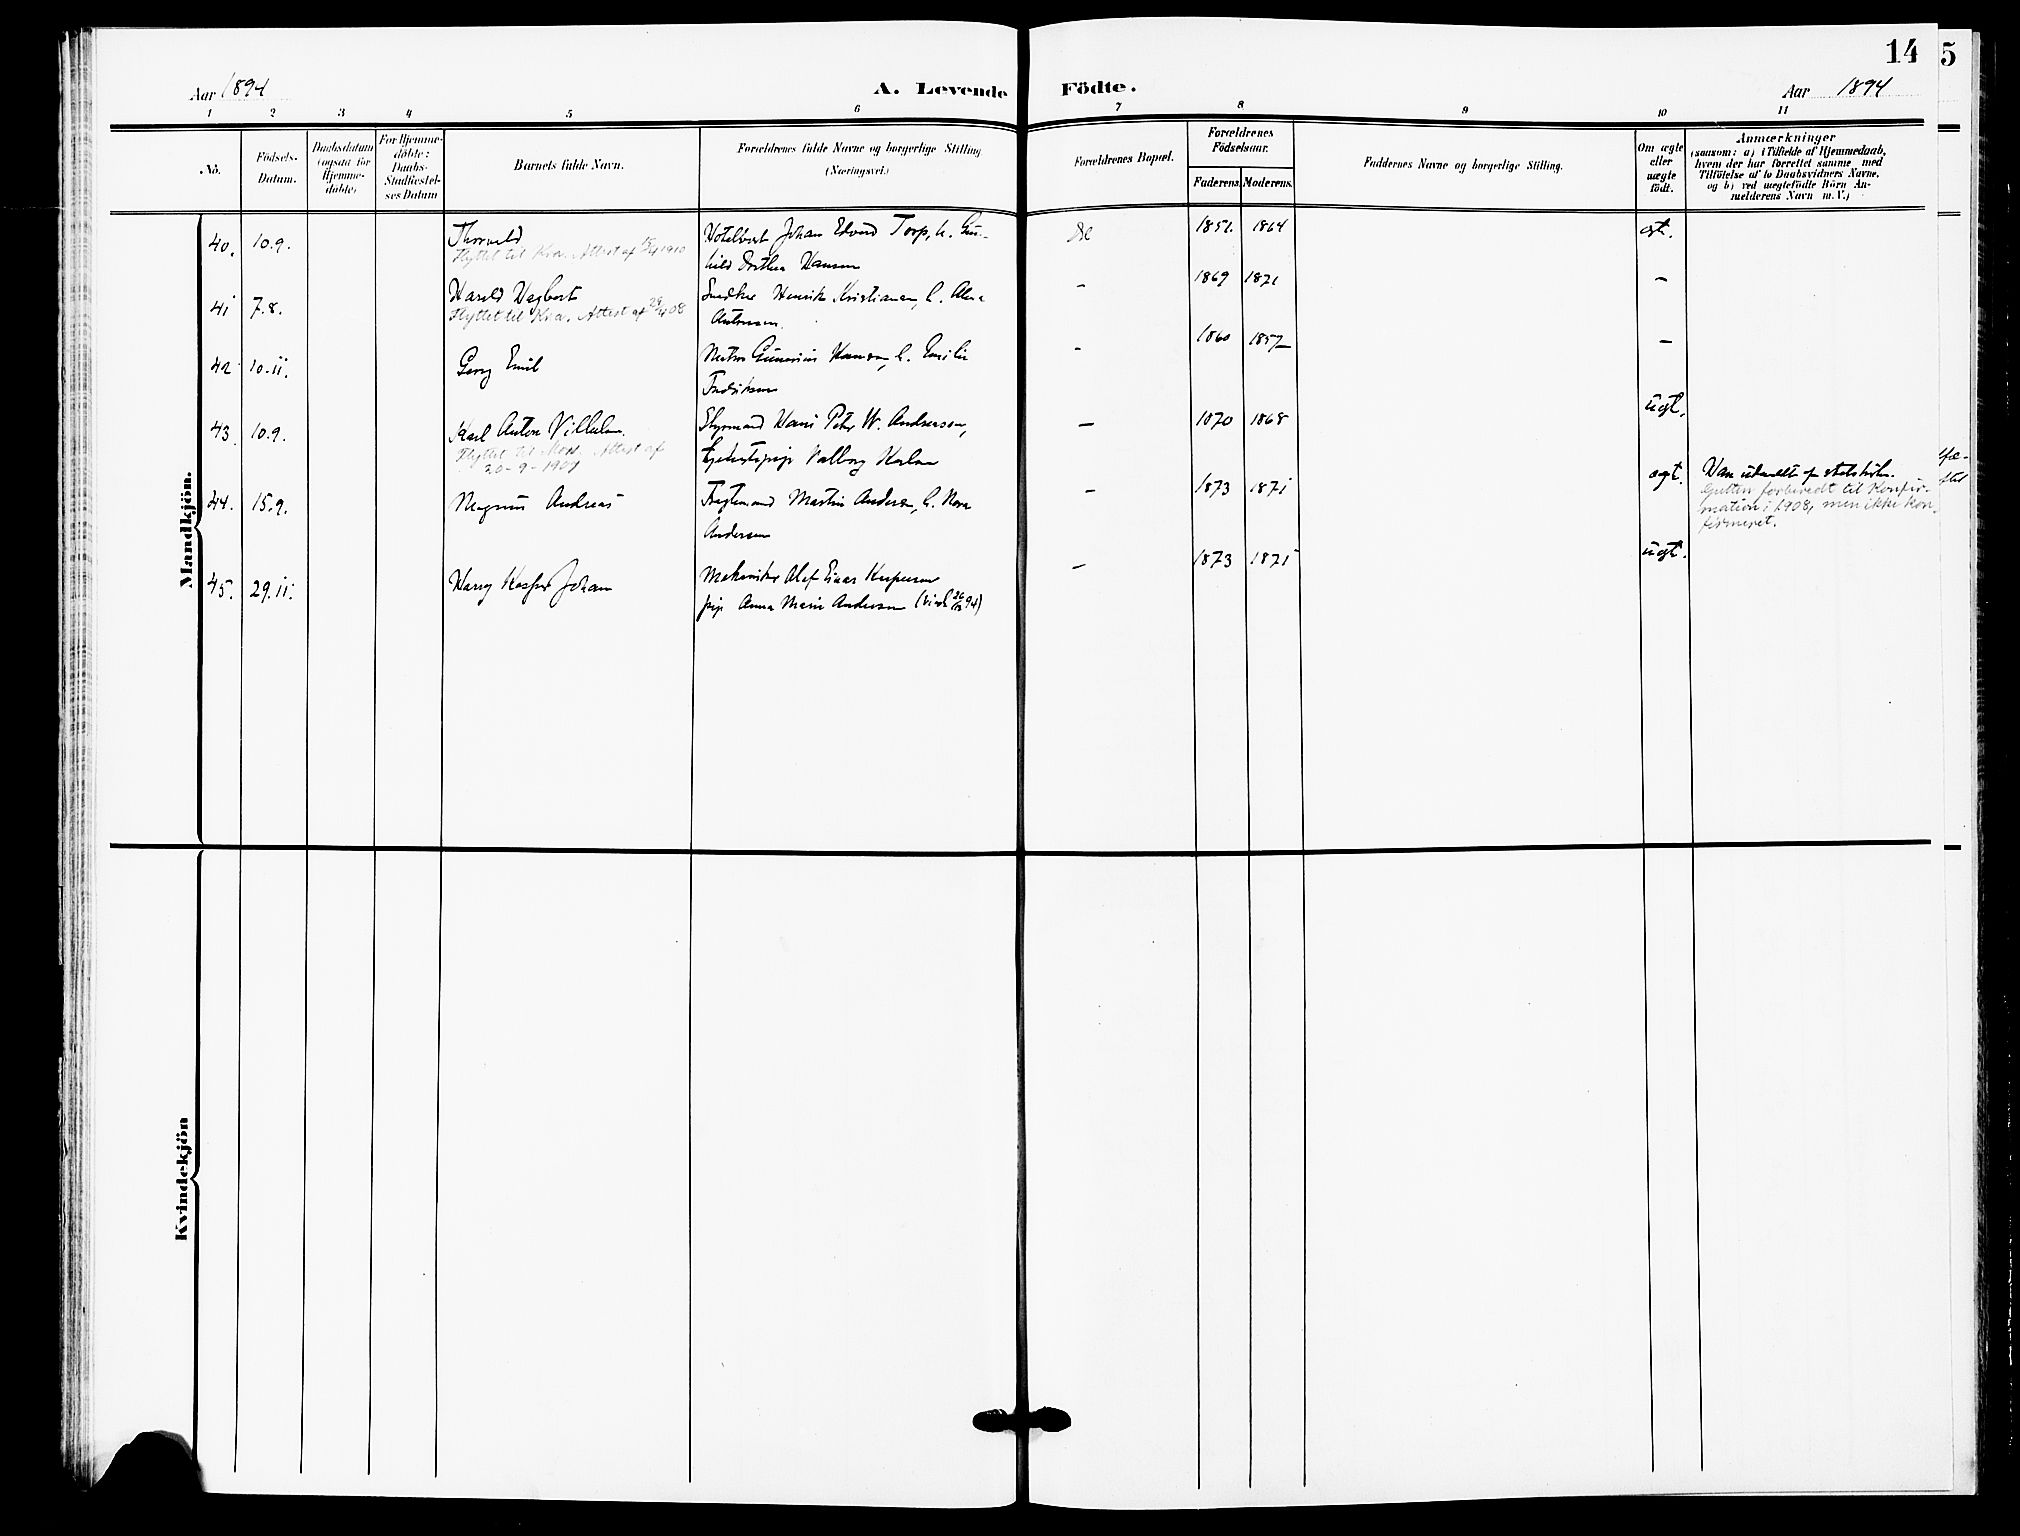 14
5
Aar 1894
A. Levende Födte.
Aar 1894
1 2 3 4 5 6 7 8 9 10 11
No.
Födsels-
Datum.
Daabsdatum
(ogsaa for
Hjemme-
døbte)
For Hjemme-
døbte:
Daabs-
Stadfæstel-
ses Datum
Barnets fulde Navn.
Forældrenes fulde Navne og borgerlige Stilling
(Næringsvei.)
Forældrenes Bopæl.
Forældrenes
Födselsaar.
Faderens. Moderens.
Faddernes Navne og borgerlige Stilling.
Om ægte
eller
uægte
födt.
Anmærkninger
(saasom: a) i Tilfælde af Hjemmedaab,
hvem der har forrettet samme med
Tilföielse af to Daabsvidners Navne,
og b) ved uægtefödte Börn An-
melderens Navn m. V.)
Mandkjön.
40. 10.9. Thorvald
Flyttet til Kra. Attest af 1910
Johan Edvard Torp, h. Gun-
hild Dorthea Hansen
1864 ægt.
41 7.8. Harald Dagbert
Flyttet til Kra. Attest af 08
Snedker Henrik Kristiansen, h.
Antonsen.
– 1869 1871 –
42 10.11. Georg Emil
Gunerius Hansen, h. Emilie
Fredriksen
– 1860 1857 –
43. 10.9. Karl Anton Vilhelm.
Flyttet til Moss. Attest af
20-9-1909
Styrmand Hans Peter W. Andreassen,
Valborg Karlsen
– 1870 1868 uægt.
44. 15.9. Magnus Andreas
Martin Andersen, h. Nora
Andersen
– 1873 1871 ægt.
Gutten forberedt til Konfir-
mation i 1908, men ikke kon-
firmeret.
45. 29.11. Harry Kasper Johan
Olaf Einar Kaspersen
pige Anna Marie Andersen
– 1873 1875 uægt.
Kvindekjön